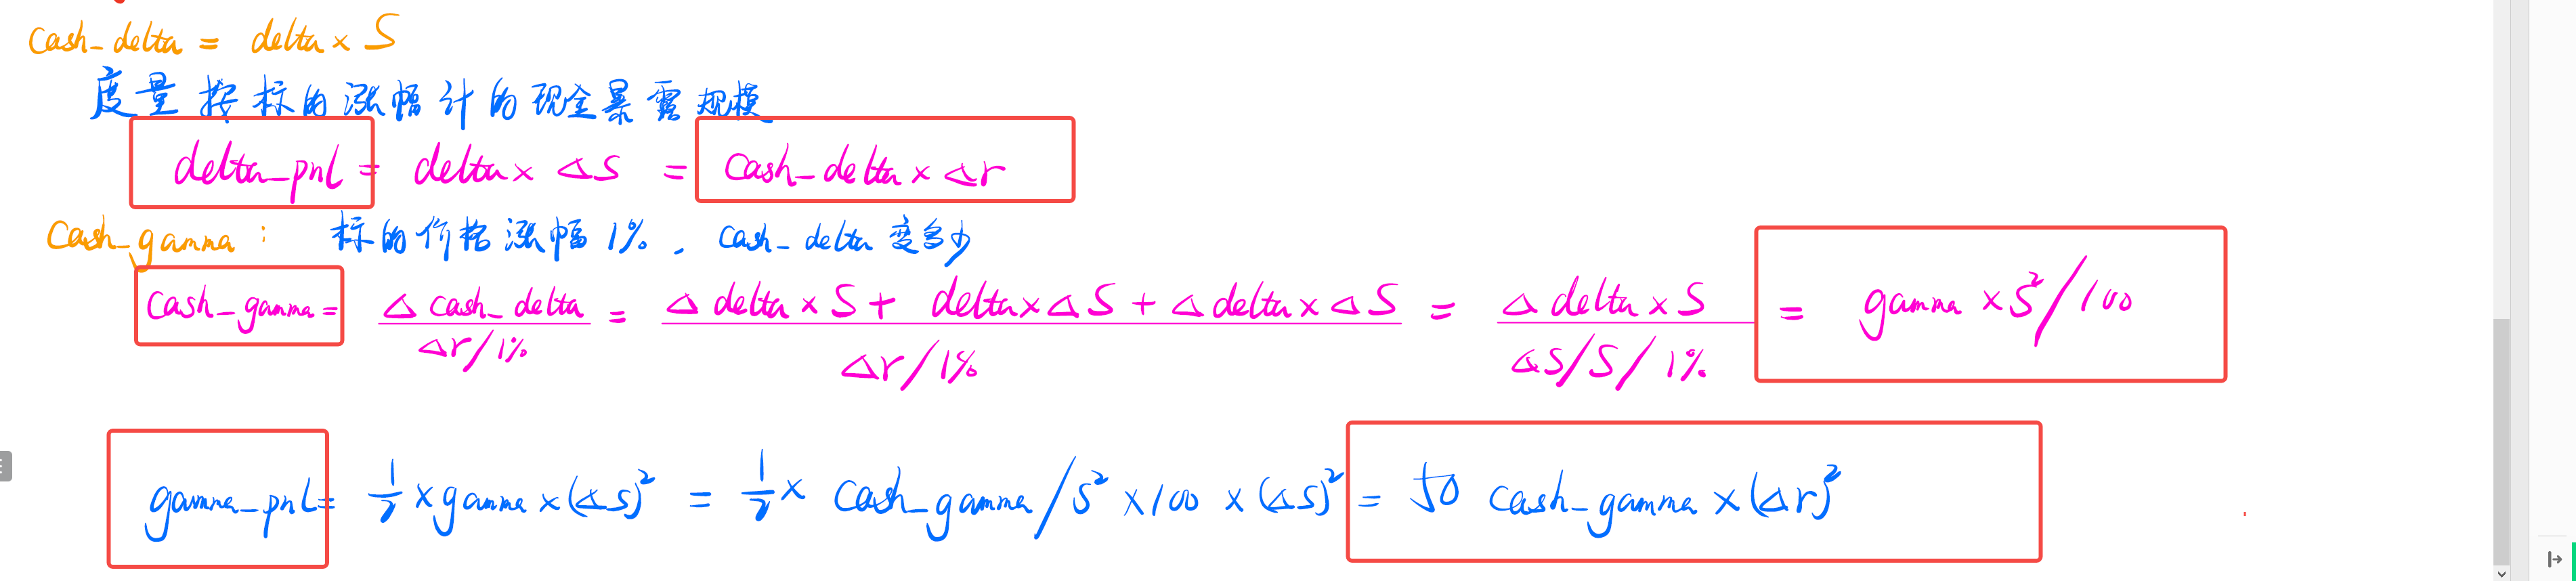 cash_delta = delta × S
度量按标的涨幅计的现金暴露规模
delta_pnl = delta × ΔS = cash_delta × Δr
cash_gamma : 标的价格涨幅1%, cash_delta 变多少
cash_gamma = Δcash_delta / (Δr/1%) = (Δdelta × S + delta × ΔS + Δdelta × ΔS) / (Δr/1%) = (Δdelta × S) / (ΔS/S/1%) = gamma × S²/100
gamma_pnl = 1/2 × gamma × (ΔS)² = 1/2 × cash_gamma/S² × 100 × (ΔS)² = 50 cash_gamma × (Δr)²